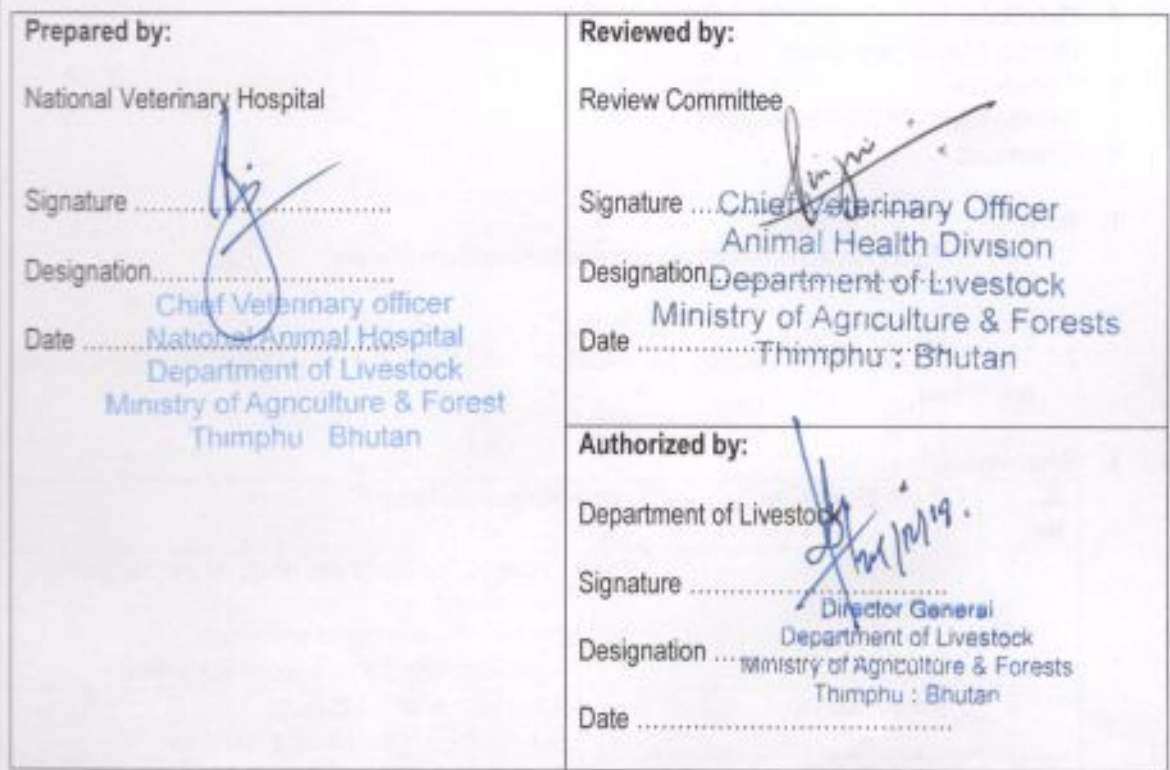 Prepared by:
National Veterinary Hospital
Signature ..............................
Designation..............................
Date ..............................
Chief Veterinary officer
National Animal Hospital
Department of Livestock
Ministry of Agriculture & Forest
Thimphu Bhutan
Reviewed by:
Review Committee
Signature ..............................
Designation..............................
Date ..............................
Chief Veterinary Officer
Animal Health Division
Department of Livestock
Ministry of Agriculture & Forests
Thimphu : Bhutan
Authorized by:
Department of Livestock
Signature ..............................
Designation ..............................
Date ..............................
Director General
Department of Livestock
Ministry of Agriculture & Forests
Thimphu : Bhutan